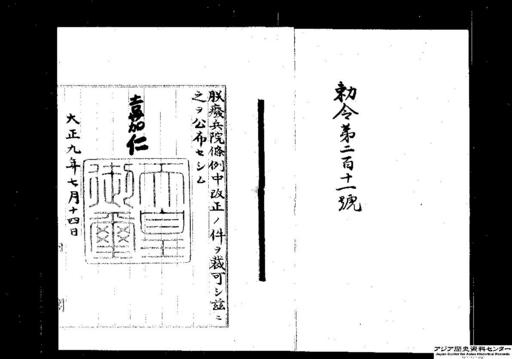 勅令第二百十一號
朕癈兵院條例中改正ノ件ヲ裁可シ茲ニ
之ヲ公布セシム
嘉仁
天皇御璽
大正九年七月十四日
アジア歴史資料センター
Japan Center for Asian Historical Records